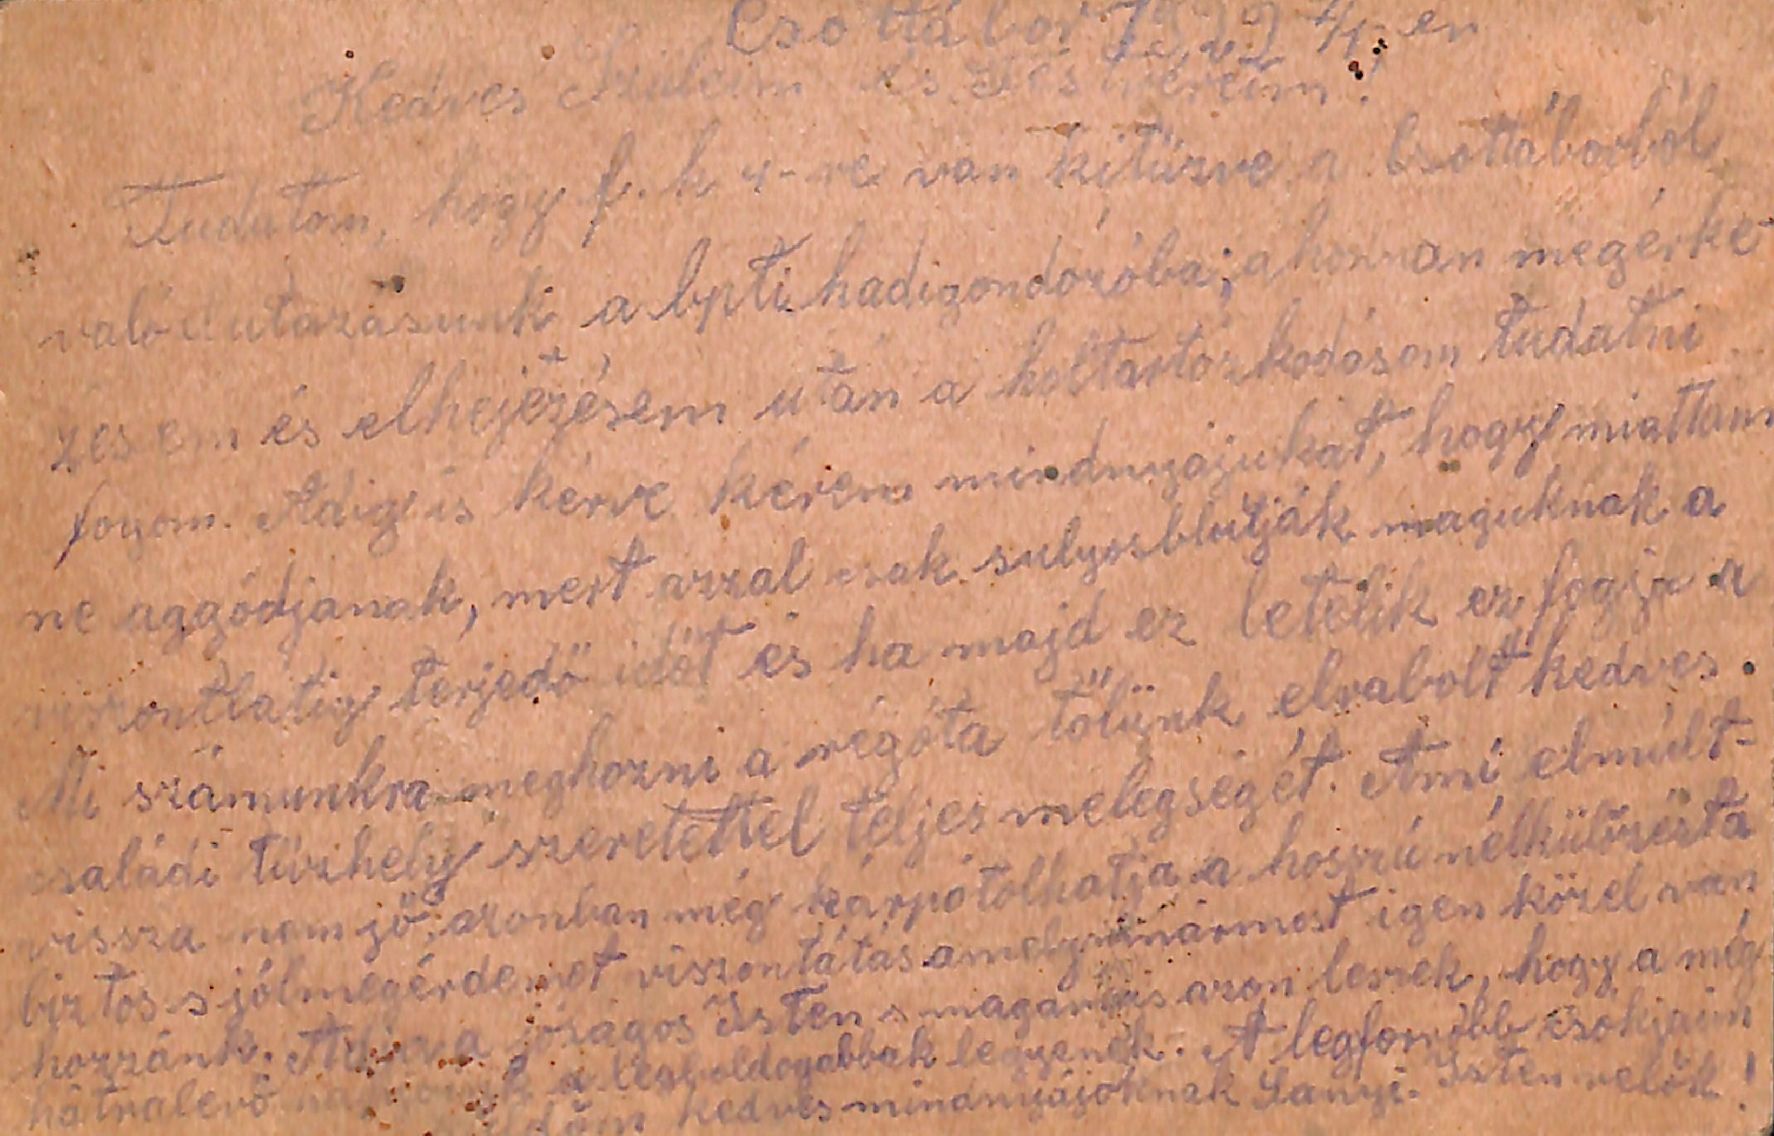 Csottábor
Kedves Szüleim és Testvéreim!
Tudatom, hogy f. h 4-re van kitüzve a Csottáborból
való elutazásunk a bpti hadigondozóba; ahonnan megérke
zésem és elhejezésem után a holtartózkodásom tudatni
fogom. Adig is kérve kérem mindnyájukat, hogy miattam
ne aggódjanak, mert azzal csak sulyosbbitják maguknak a
viszontlatig terjedő időt és ha majd ez letelik ez fogja a
Mi számunkra meghozni a régóta tőlünk elrabolt kedves
családi tüzhely szeretettel teljes melegségét. Ami elmúlt-
vissza nem jő; azonban még kárpótolhatja a hosszú nélkülözést a
biztos s jólmegérdemet viszontátás amely mármost igen közel van
hozzánk. jóságos Isten s magam is azon leszek, hogy a még
hátralevő a legboldogabbak legyenek. A legforróbb csókjaim
kedves mindnyájoknak Sanyi. Isten velök!